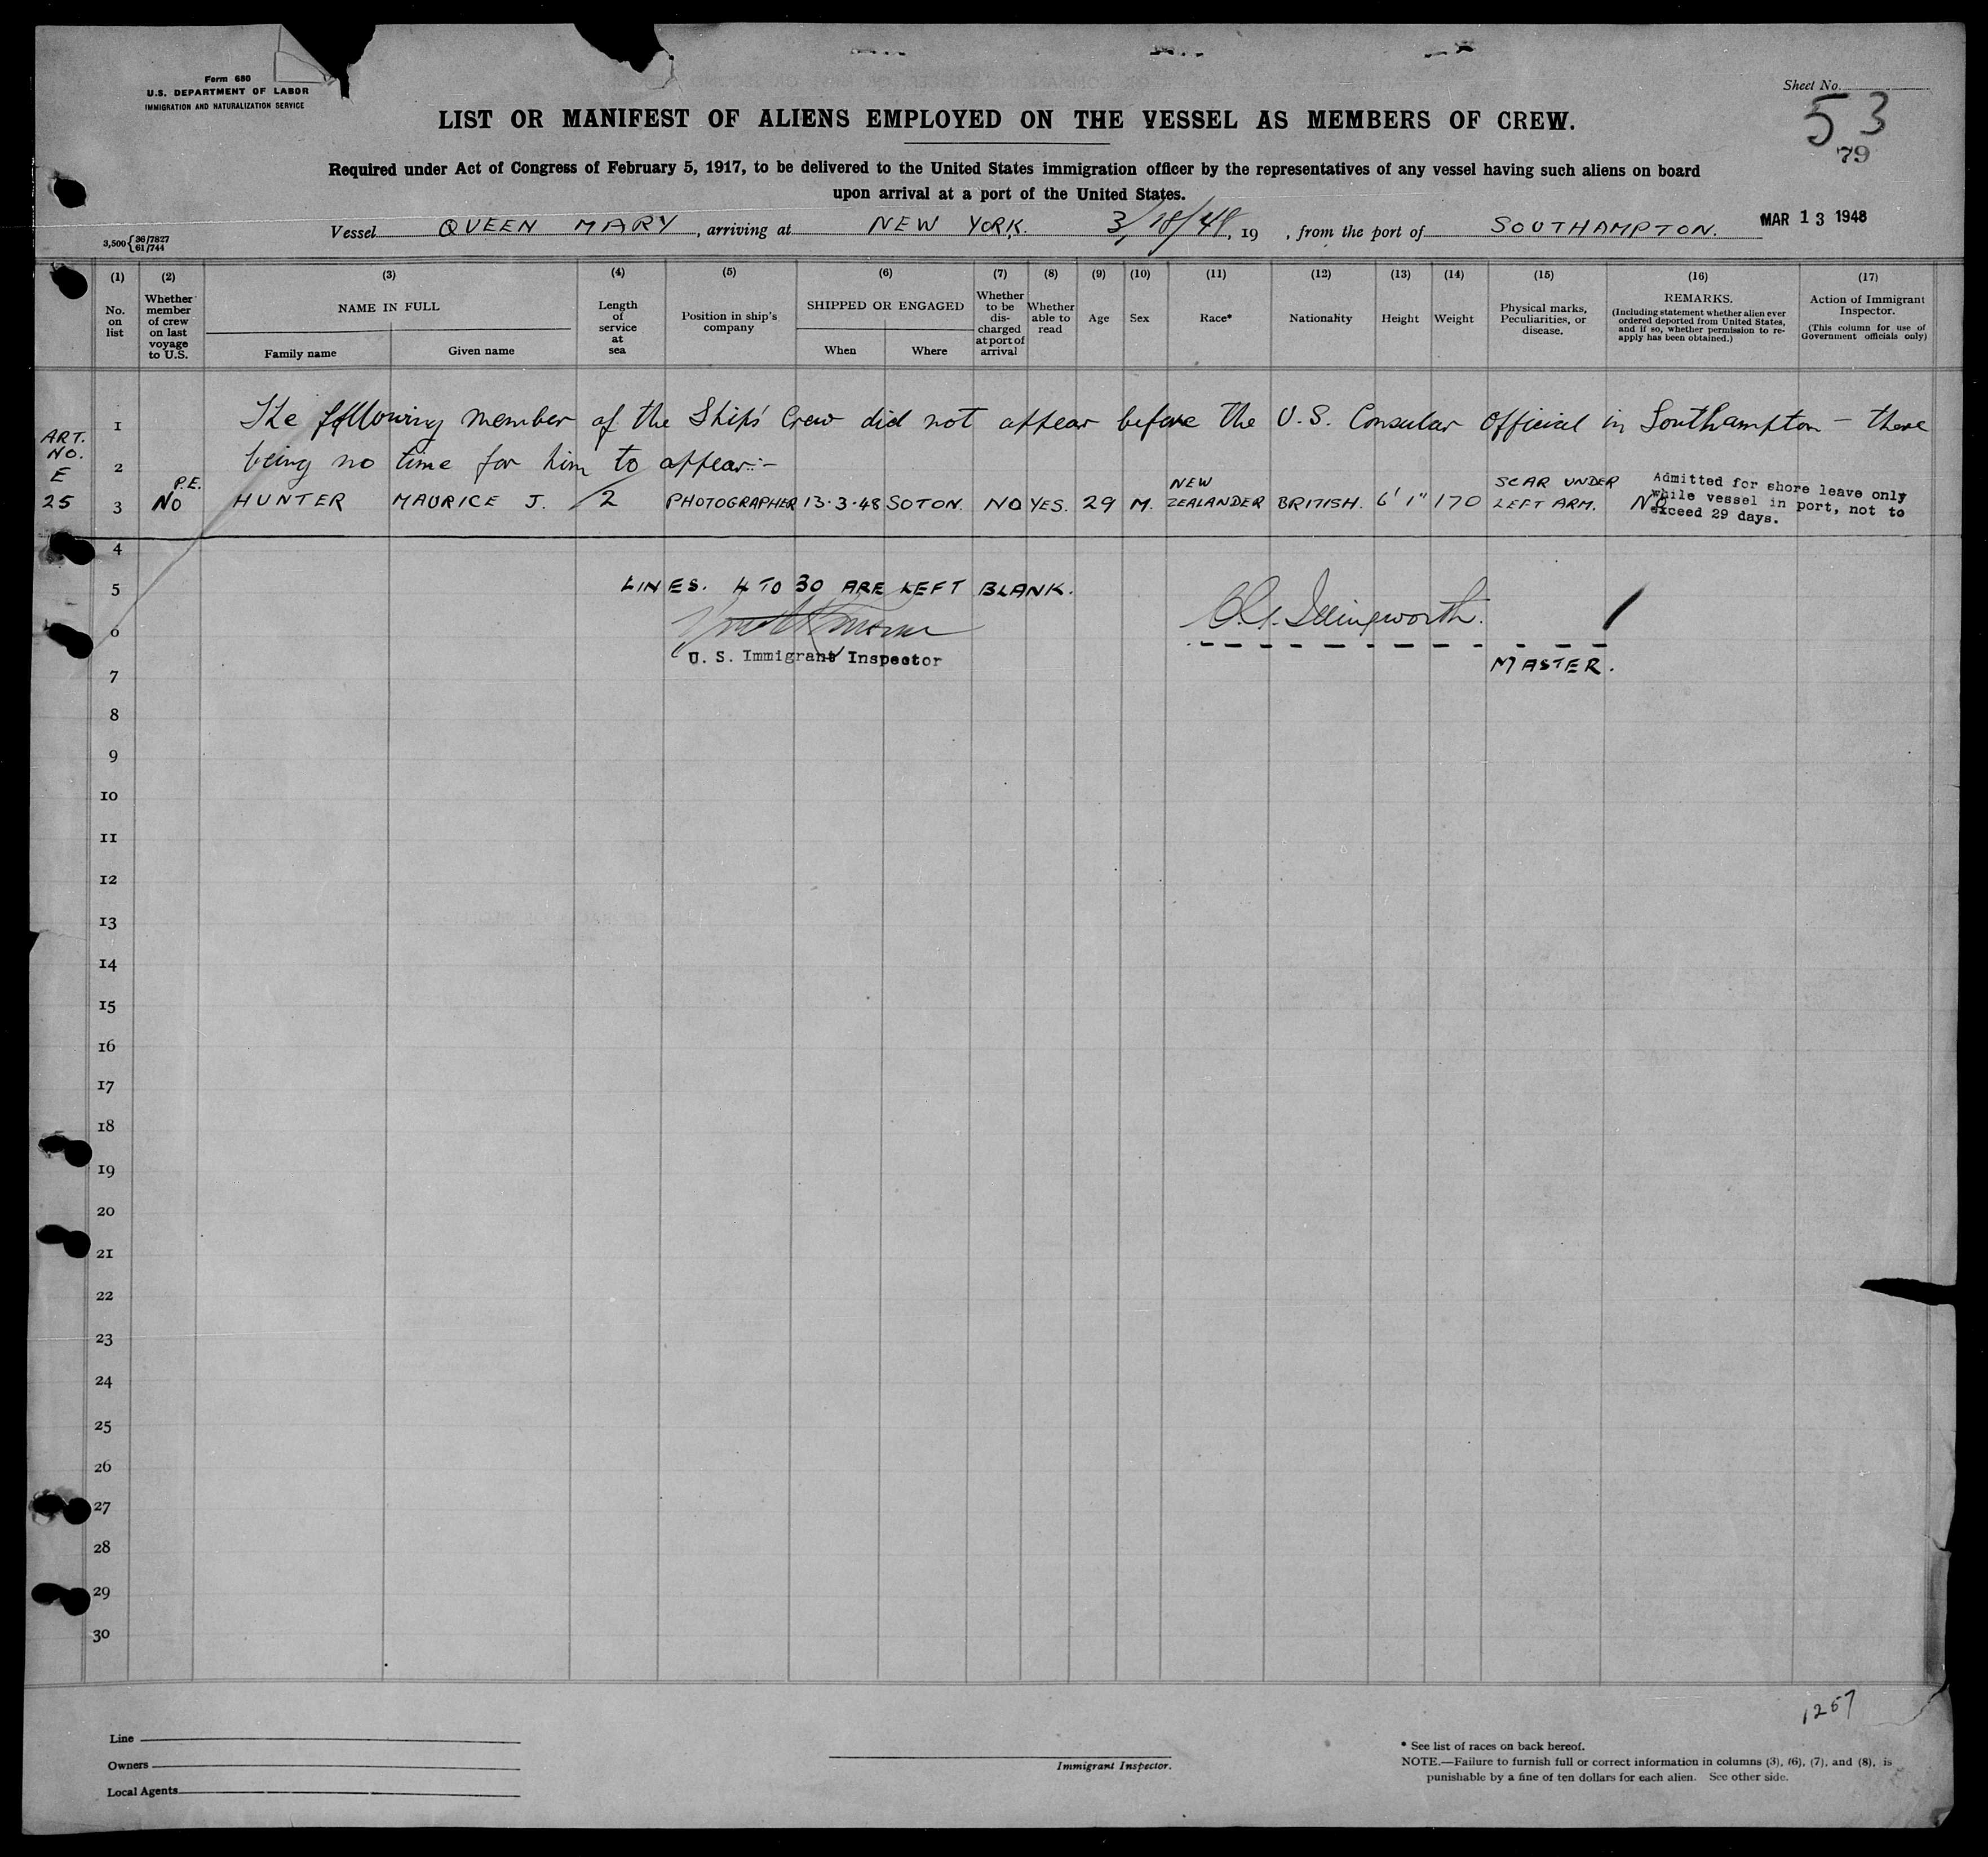 Form 680
U.S. DEPARTMENT OF LABOR
IMMIGRATION AND NATURALIZATION SERVICE
Sheet No.
53
79
LIST OR MANIFEST OF ALIENS EMPLOYED ON THE VESSEL AS MEMBERS OF CREW.
Required under Act of Congress of February 5, 1917, to be delivered to the United States immigration officer by the representatives of any vessel having such aliens on board
upon arrival at a port of the United States.
3,500 { 36/7827 61/744
Vessel QUEEN MARY, arriving at NEW YORK. 3/18/48, 19 , from the port of SOUTHAMPTON. MAR 13 1948
(1) (2) (3) (4) (5) (6) (7) (8) (9) (10) (11) (12) (13) (14) (15) (16) (17)
No. on list
Whether member of crew on last voyage to U.S.
NAME IN FULL
Family name Given name
Length of service at sea
Position in ship's company
SHIPPED OR ENGAGED
When Where
Whether to be discharged at port of arrival
Whether able to read
Age
Sex
Race*
Nationality
Height
Weight
Physical marks, Peculiarities, or disease.
REMARKS.
(Including statement whether alien ever ordered deported from United States, and if so, whether permission to re-apply has been obtained.)
Action of Immigrant Inspector.
(This column for use of Government officials only)
1 The following member of the Ship's Crew did not appear before the U.S. Consular Official in Southampton – there
ART. NO. E 25
2 being no time for him to appear:-
3 P.E. NO HUNTER MAURICE J. 2 PHOTOGRAPHER 13·3·48 SOTON. NO YES. 29 M. NEW ZEALANDER BRITISH. 6'1" 170 SCAR UNDER LEFT ARM. NO
Admitted for shore leave only
while vessel in port, not to
exceed 29 days.
4
5 LINES. 4 TO 30 ARE LEFT BLANK.
6 Illingworth.
U. S. Immigrant Inspector
MASTER.
7
8
9
10
11
12
13
14
15
16
17
18
19
20
21
22
23
24
25
26
27
28
29
30
1257
Line
Owners
Local Agents
Immigrant Inspector.
* See list of races on back hereof.
NOTE.—Failure to furnish full or correct information in columns (3), (6), (7), and (8), is
punishable by a fine of ten dollars for each alien. See other side.